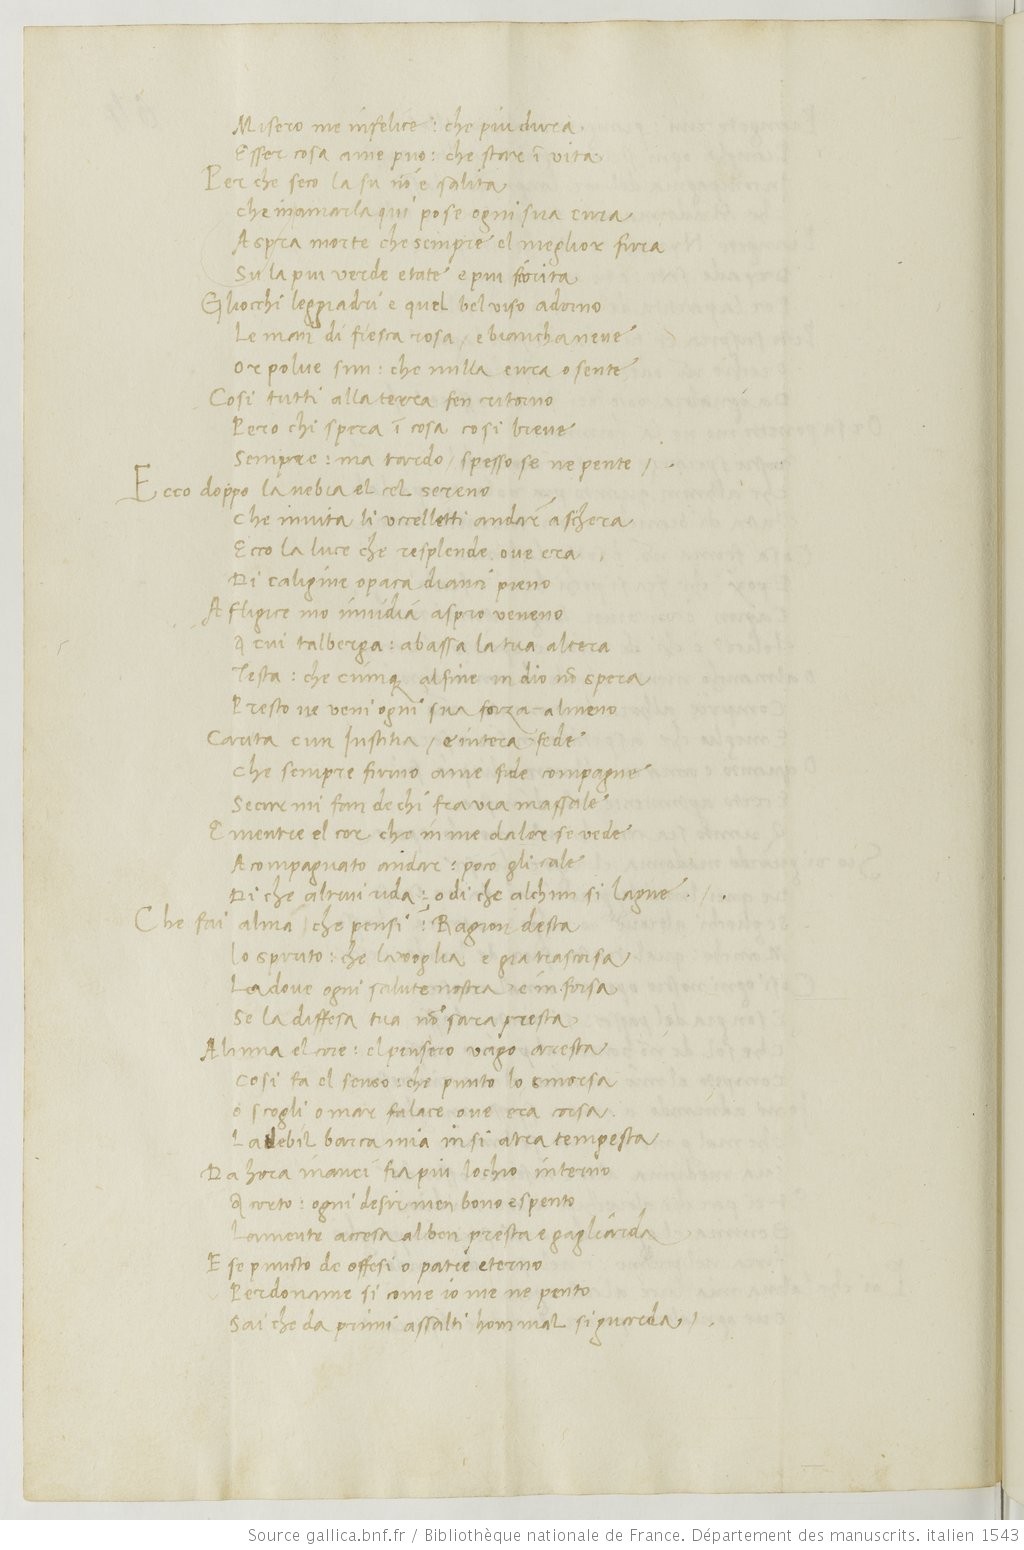 Misero me infelice : che piu dura
Esser cosa a me puo : che stare ī vita
Per che seco la su nō e salita
che in amarla qui pose ogni sua cura
Aspra morte che sempre el meglior fura
Su la piu verde etate e piu florita
Gliocchi leggiadri e quel bel viso adorno
Le man di fresca rosa / e biancha neve
Or polve sun : che nulla cura o sente
Cosi tutti alla terra fen ritorno
Pero chi spera ī cosa cosi breve
Sempre : ma tardo / spesso se ne pente / .
Ecco doppo la nebia el cel sereno
che invita li uccelletti andar a schera
Ecco la luce che resplende ove era
Di caligine opaca dianci pieno
Afligice mo invidia aspro veneno
A cui talberga : abassa la tua altera
Testa : che cunq al fine in dio nō spera
Presto ve veni ogni sua forza almeno
Carita cun Justitia / e intera fede
che sempre furno a me fide compagne
Secur mi fan de chi fra via massale
E mentre el cor che in me dalor se vede
Acompagnato andar : poco gli cale
Di che altrui rida : o di che alchun si lagne . / .
Che fai alma / che pensi ? Ragion desta
lo spirito : che la voglia e gia trascorsa
La dove ogni salute nostra e in forsa
Se la diffesa tua nō sara presta
Alinna el core : el pensero vago arresta
Cosi fa el senso : che punto lo smorsa
o scogli o mar falace ove era corsa
La debil barca mia in si atra tempesta
Da hora inanci fia piu lochio interno
Acorto : ogni desir men bono espento
La mente accesa al ben presta e gagliarda
E se punsto de offesi o patre eterno
Perdoname si come io me ne pento
Sai che da primi assalti hom mal si guarda / .
Source gallica.bnf.fr / Bibliothèque nationale de France. Département des manuscrits. italien 1543